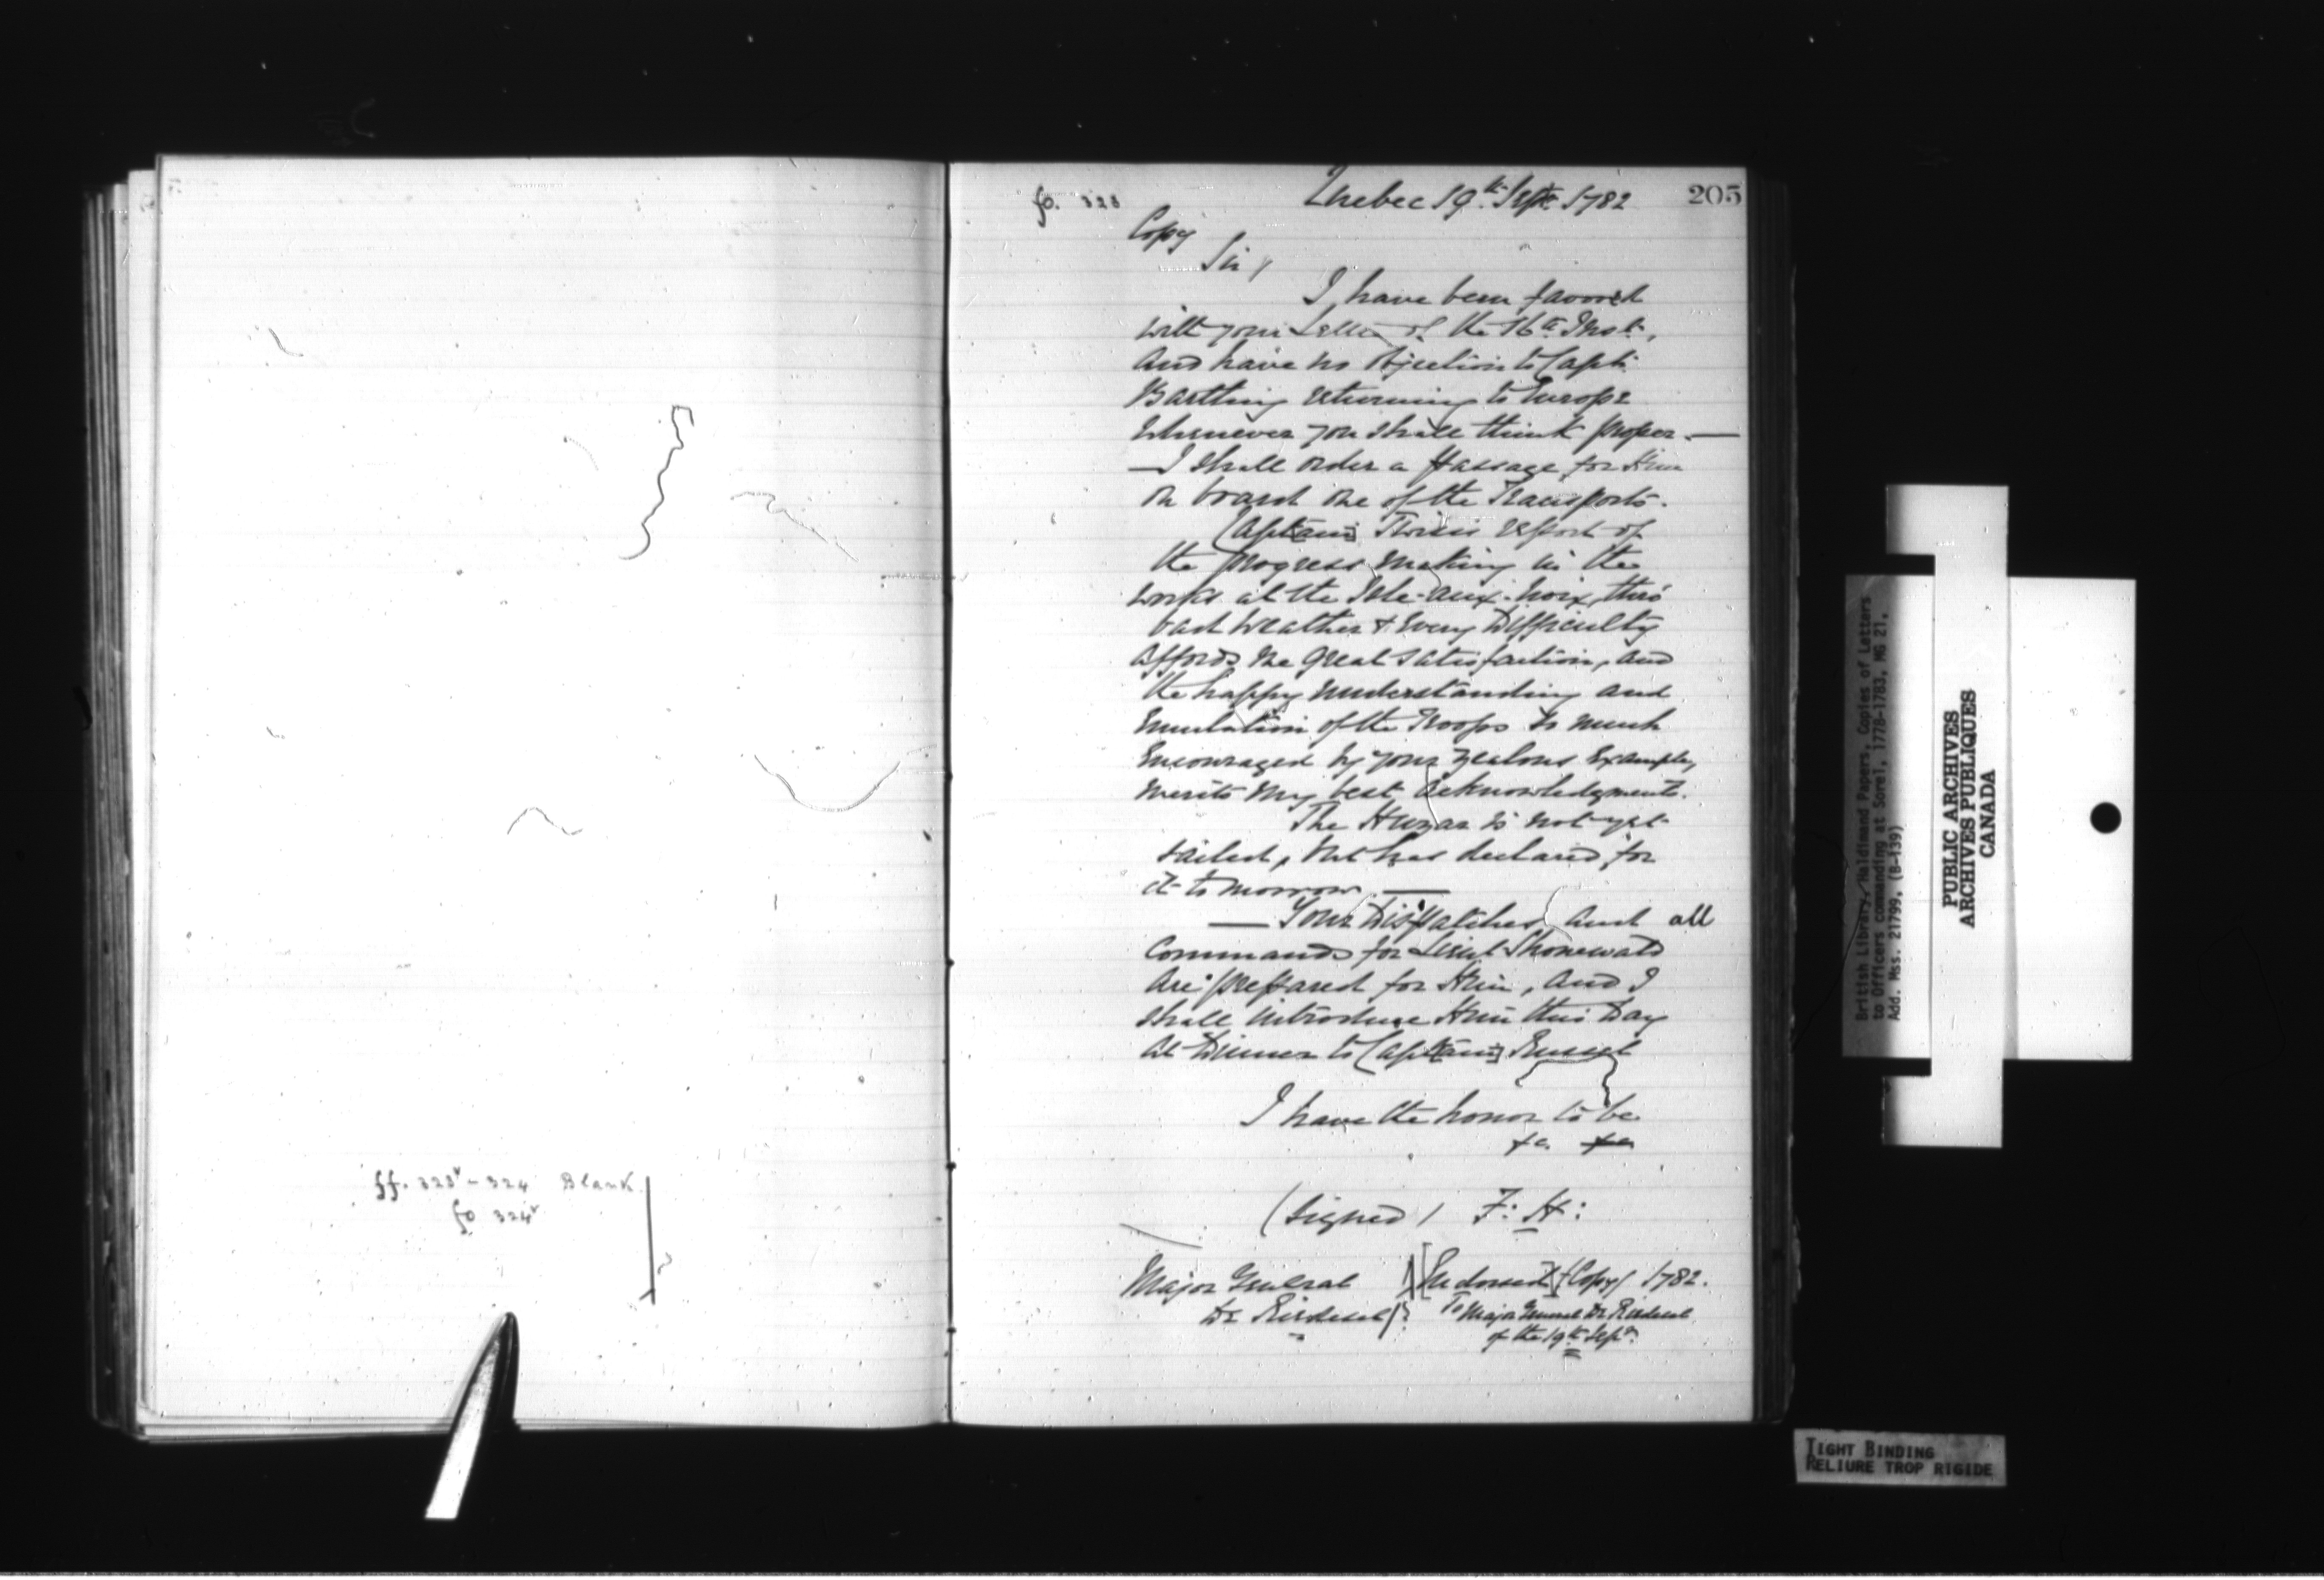 ff. 323v - 324 Blank
fo 324v
fo. 323
Quebec 19th Septr 1782
205
Copy
Sir /
I have been favored
with your Letter of the 16th Inst.,
And have no Objection to Capt.
Barthling returning to Europe
Whenever you shall think proper. —
— I shall order a Passage for Him
on board one of the Transports.
Capt[ain] Twiss's report of
the progress making in the
works at the Isle-aux-Noix, thro'
bad weather & every Difficulty
affords me great satisfaction, and
the happy understanding and
Emulation of the Troops so much
Encouraged by your zealous Example,
merits My best Acknowledgments.
The Huzar is not yet
sailed, but has declared for
it to morrow. —
— Your Dispatches, and all
Commands for Lieut Shonewald
Are prepared for Him, And I
shall introduce Him this Day
At Dinner to Capt[ain] Russel
I have the honor to be
&c. &c.
(Signed) F: H:
Major General
De Riedesel
[Endorsed] (Copy) 1782.
To Major General De Riedesel
of the 19th Sepr.
British Library, Haldimand Papers, Copies of Letters
to Officers commanding at Sorel, 1778-1783, MG 21,
Add. Mss. 21799, (B-139)
PUBLIC ARCHIVES
ARCHIVES PUBLIQUES
CANADA
TIGHT BINDING
RELIURE TROP RIGIDE